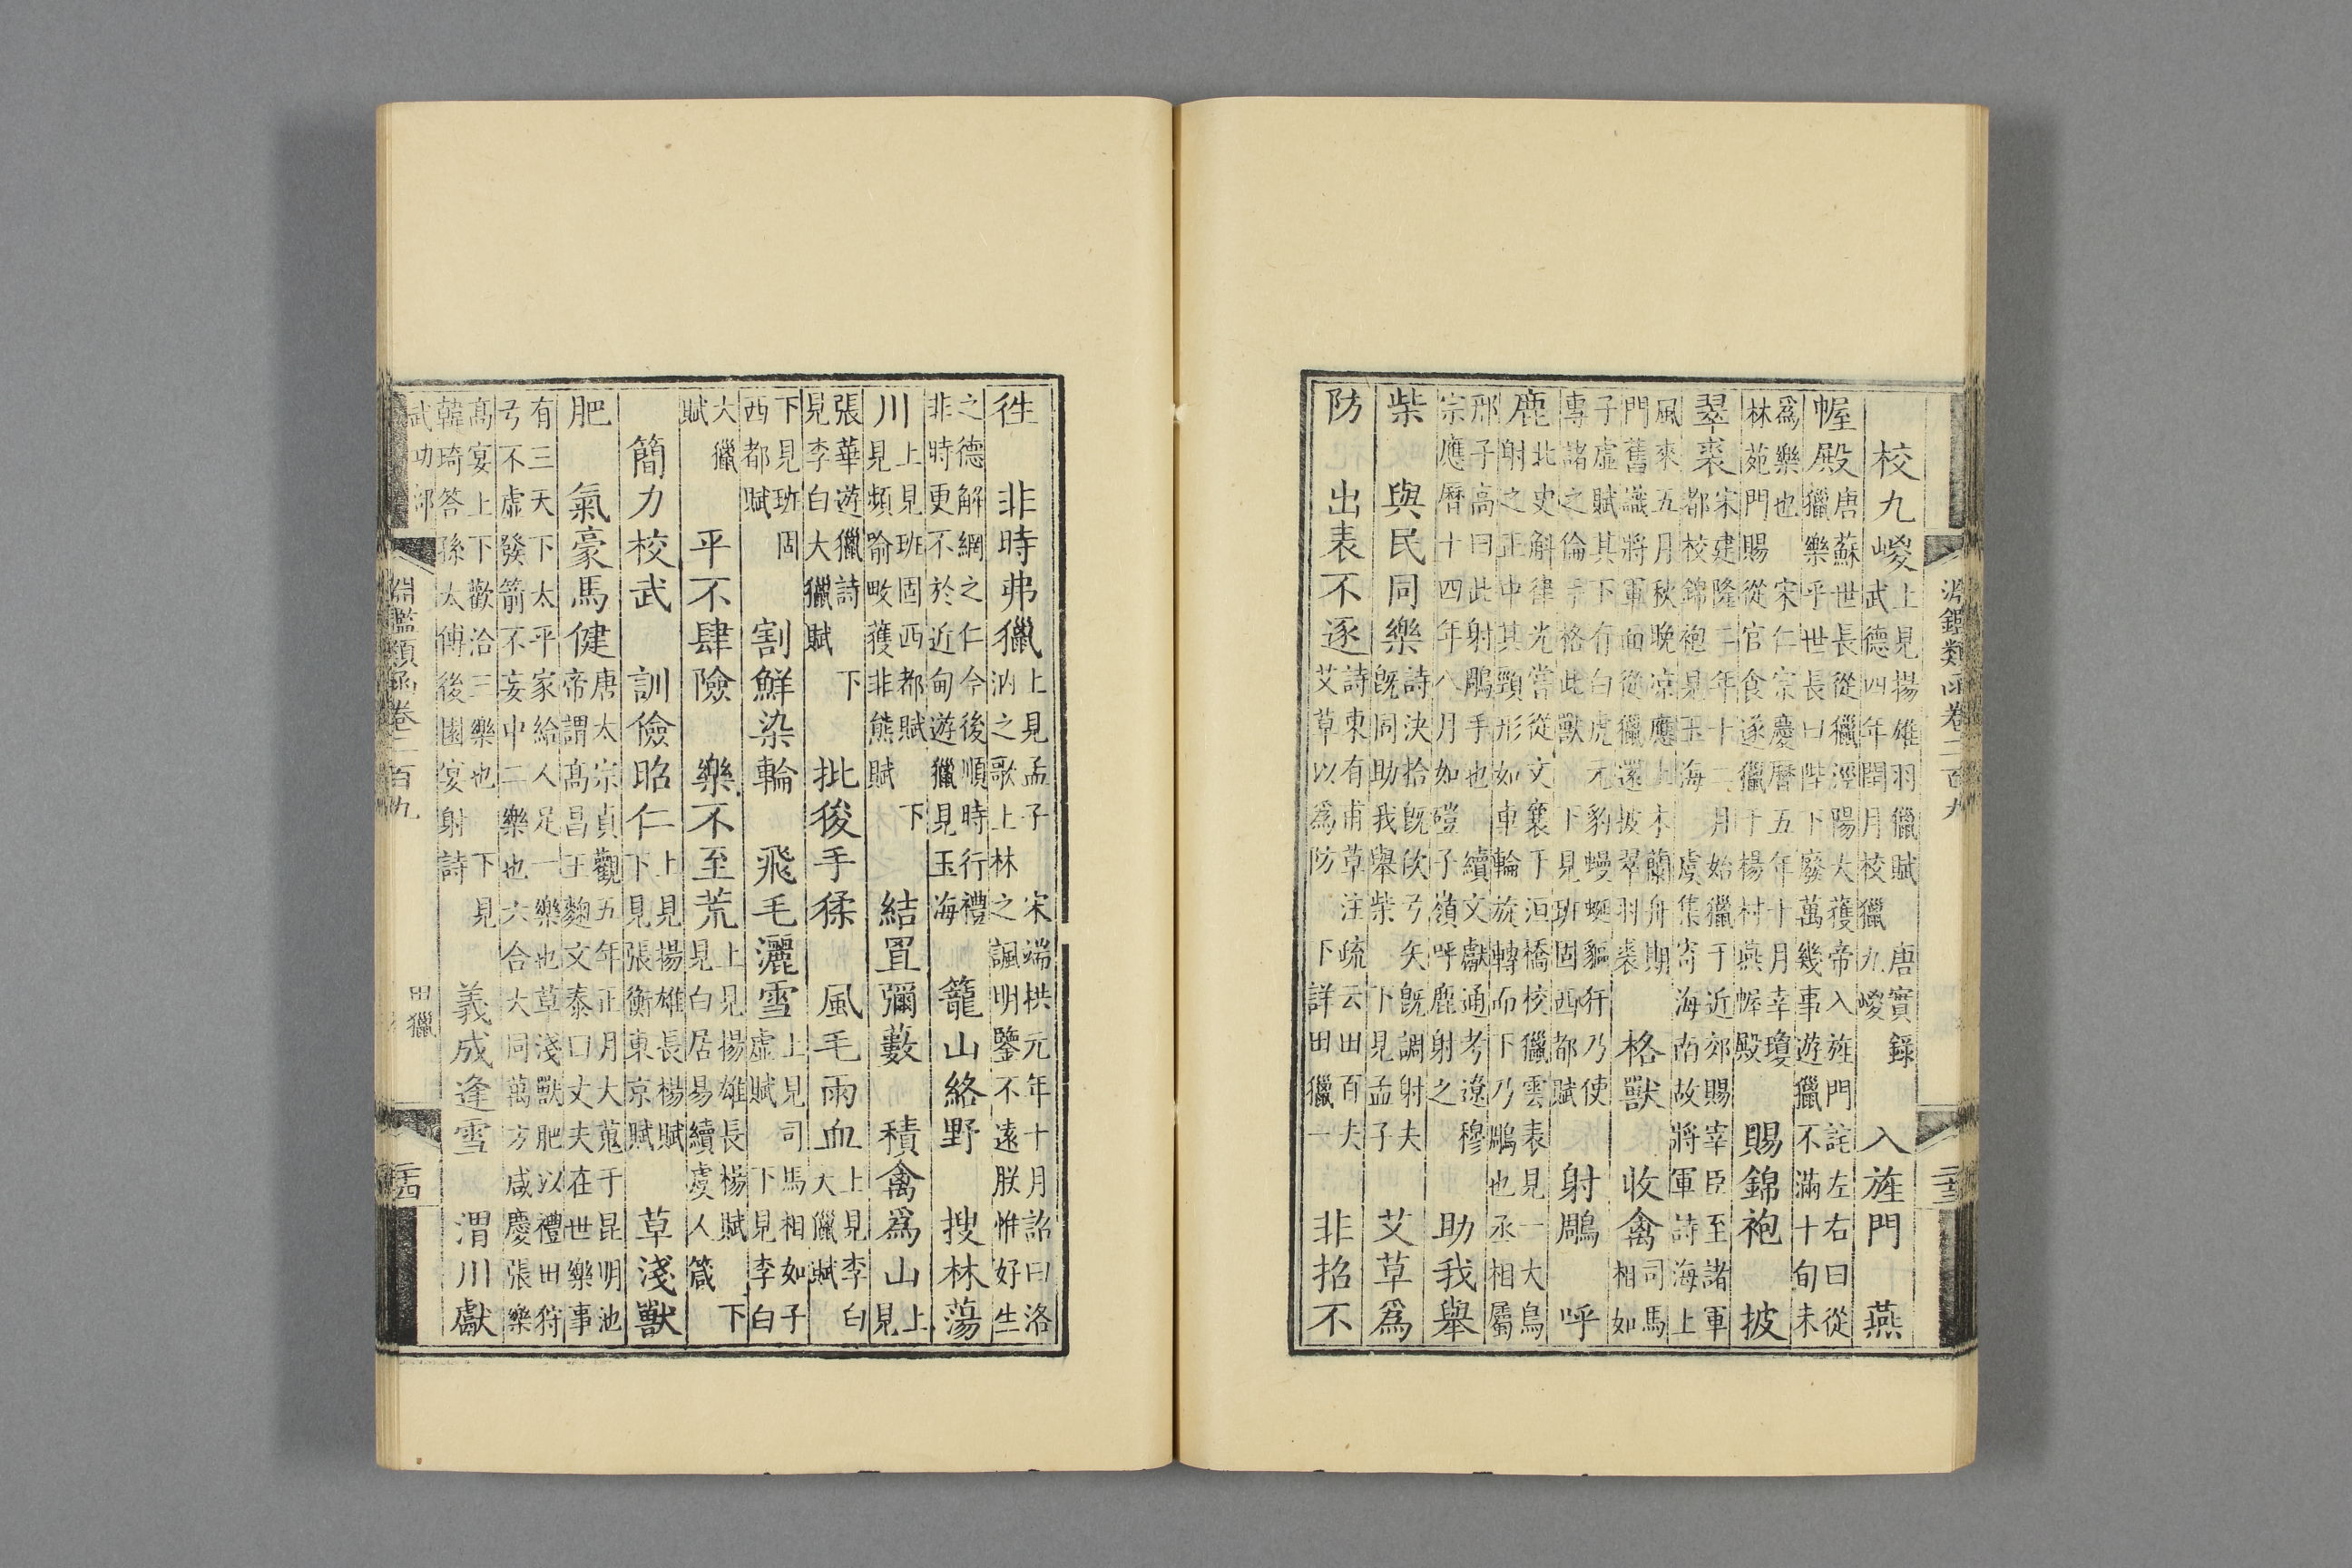 淵鑑類函卷二百九
二十三
校九嵕
上見揚雄羽獵賦 唐實錄
武德四年閏月校獵九嵕
入旌門 燕
幄殿
唐蘇世長從獵涇陽大獲帝入旌門詫左右曰從
獵樂乎世長曰陛下廢萬幾事遊獵不滿十旬未
爲樂也 宋仁宗慶曆五年十月幸瓊
林苑門賜從官食遂獵于楊村燕幄殿
賜錦袍 披
翠裘
宋建隆二年十二月始獵于近郊賜宰臣至諸軍
都校錦袍見玉海 虞集寄海南故將軍詩海上
風來五月秋晚京應上木蘭舟期
門舊識將軍面從獵還披翠羽裘
格獸 收禽
司馬
相如
子虛賦其下有白虎元豹蟃蜒貙犴乃使
專諸之倫手格此獸 下見班固西都賦
射鵰 呼
鹿
北史斛律光嘗從文襄于洹橋校獵雲表見一大鳥
射之正中其頸形如車輪旋轉而下乃鵰也丞相屬
邢子高曰此射鵰手也 續文獻通考遼穆
宗應曆十四年八月如磑子嶺呼鹿射之
助我舉
柴 與民同樂
詩決拾既佽弓矢既調射夫
既同助我舉柴 下見孟子
艾草爲
防 出表不逐
詩東有甫草注疏云田百夫
艾草以爲防 下詳田獵一
非招不
徃 非時弗獵
上見孟子 宋端拱元年十月詔曰洛
汭之歌上林之諷明鑒不遠朕惟好生
之德解網之仁今後順時行禮
非時更不於近甸遊獵見玉海
籠山絡野 搜林蕩
川
上見班固西都賦 下
見頻喻畋獲非熊賦
結罝彌藪 積禽爲山
上
見
張華遊獵詩 下
見李白大獵賦
批狻手猱 風毛雨血
上見李白
大獵賦
下見班固
西都賦
割鮮染輪 飛毛灑雪
上見司馬相如子
虛賦 下見李白
大獵
賦
平不肆險 樂不至荒
上見揚雄長楊賦 下
見白居易續虞人箴
簡力校武 訓儉昭仁
上見揚雄長楊賦
下見張衡東京賦
草淺獸
肥 氣豪馬健
唐太宗貞觀五年正月大蒐于昆明池
帝謂高昌王麴文泰曰丈夫在世樂事
有三天下太平家給人足一樂也草淺獸肥以禮田狩
弓不虛發箭不妄中二樂也六合大同萬方咸慶張樂
高宴上下歡洽三樂也 下見
韓琦答孫太傅後園宴射詩
義成逢雪 渭川獻
武功部
淵鑑類函卷二百九
田獵
二十四